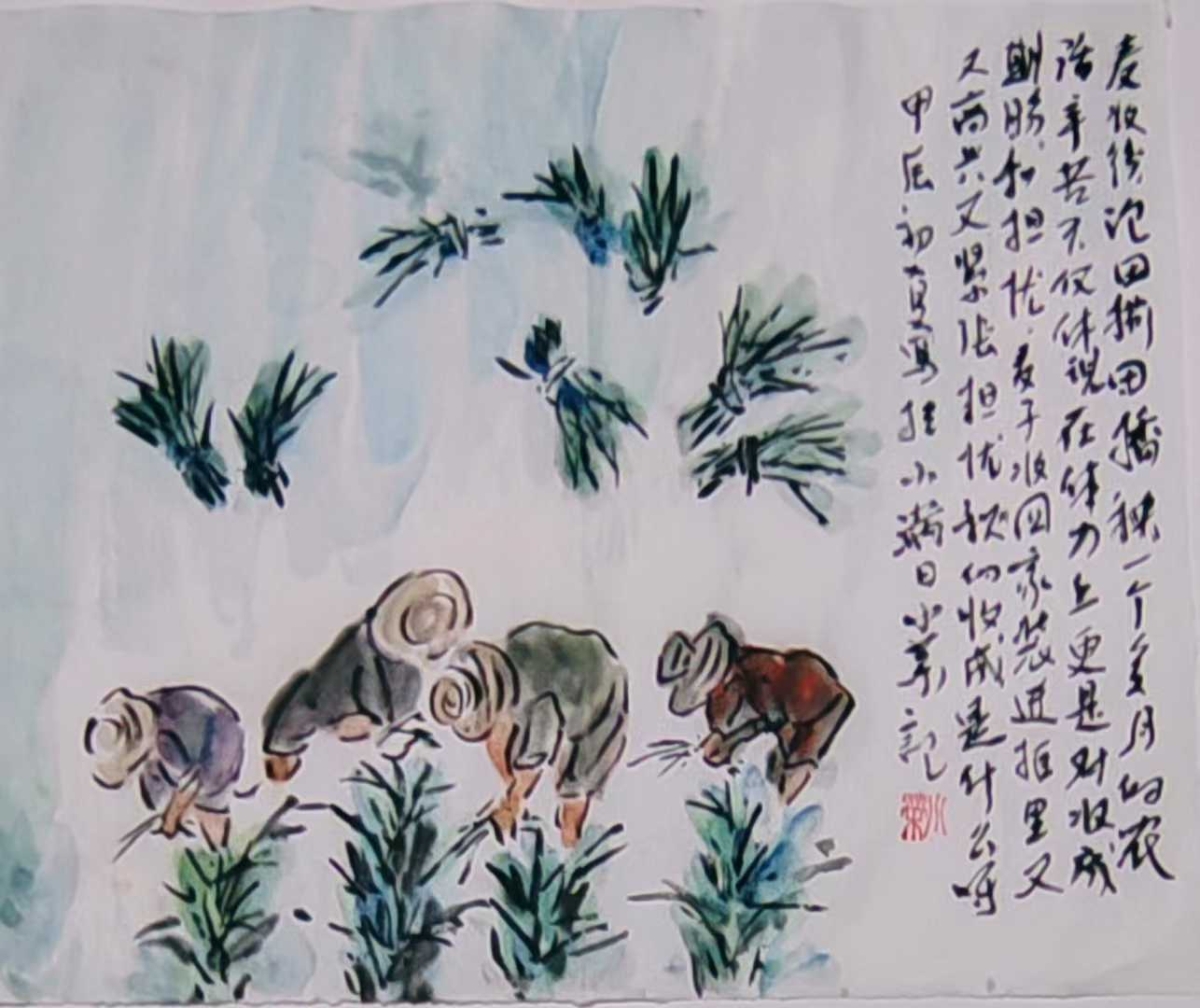 麦收后沱田撒田播秧一个多月的农
活辛苦不仅体现在体力上更是对收成
期盼和担忧.麦子收回家装进柜里又
又高兴又紧张担忧秋的收成是什么呀
甲辰初夏写 小满日小荣记